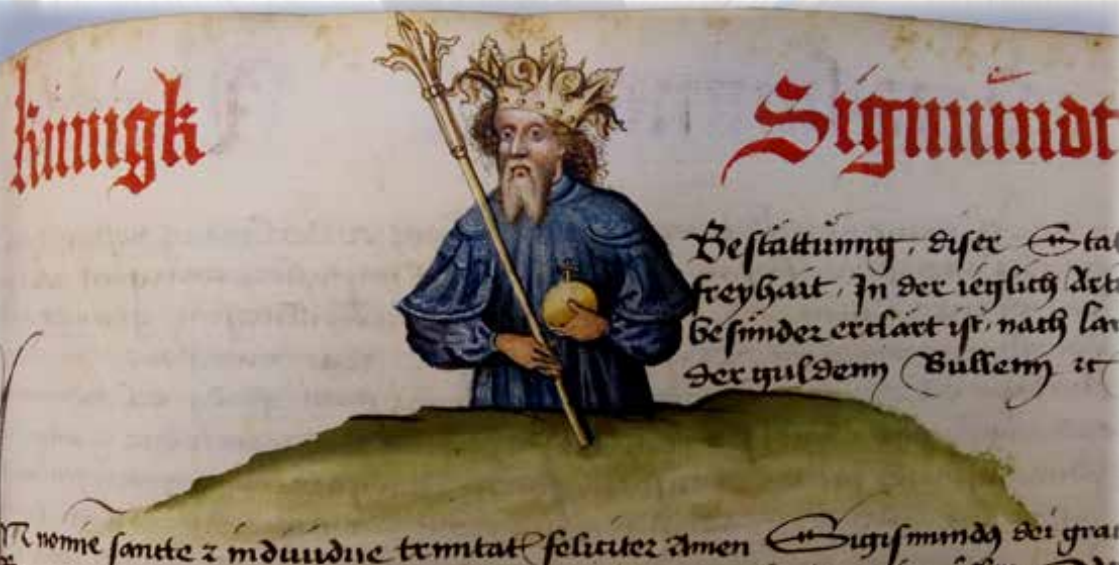 künigk Sigmündt
Bestättünng, diser Stat
freyhait, In der ieglich Arti
besünder erclärt ist, nach la
der guldenn Bullenn ꝛc
nomie sancte ⁊ indiuidue trinitat feliciter Amen Sigismundꝯ dei gra